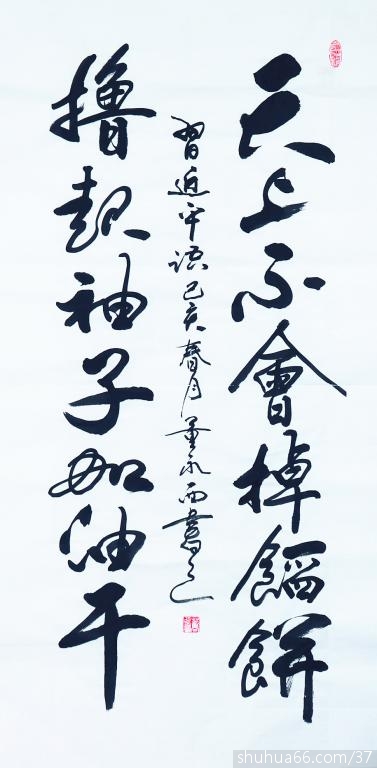 天上不會掉餡餅
擼起袖子加油干
習近平語己亥春月董永西書之
shuhua66.com/37